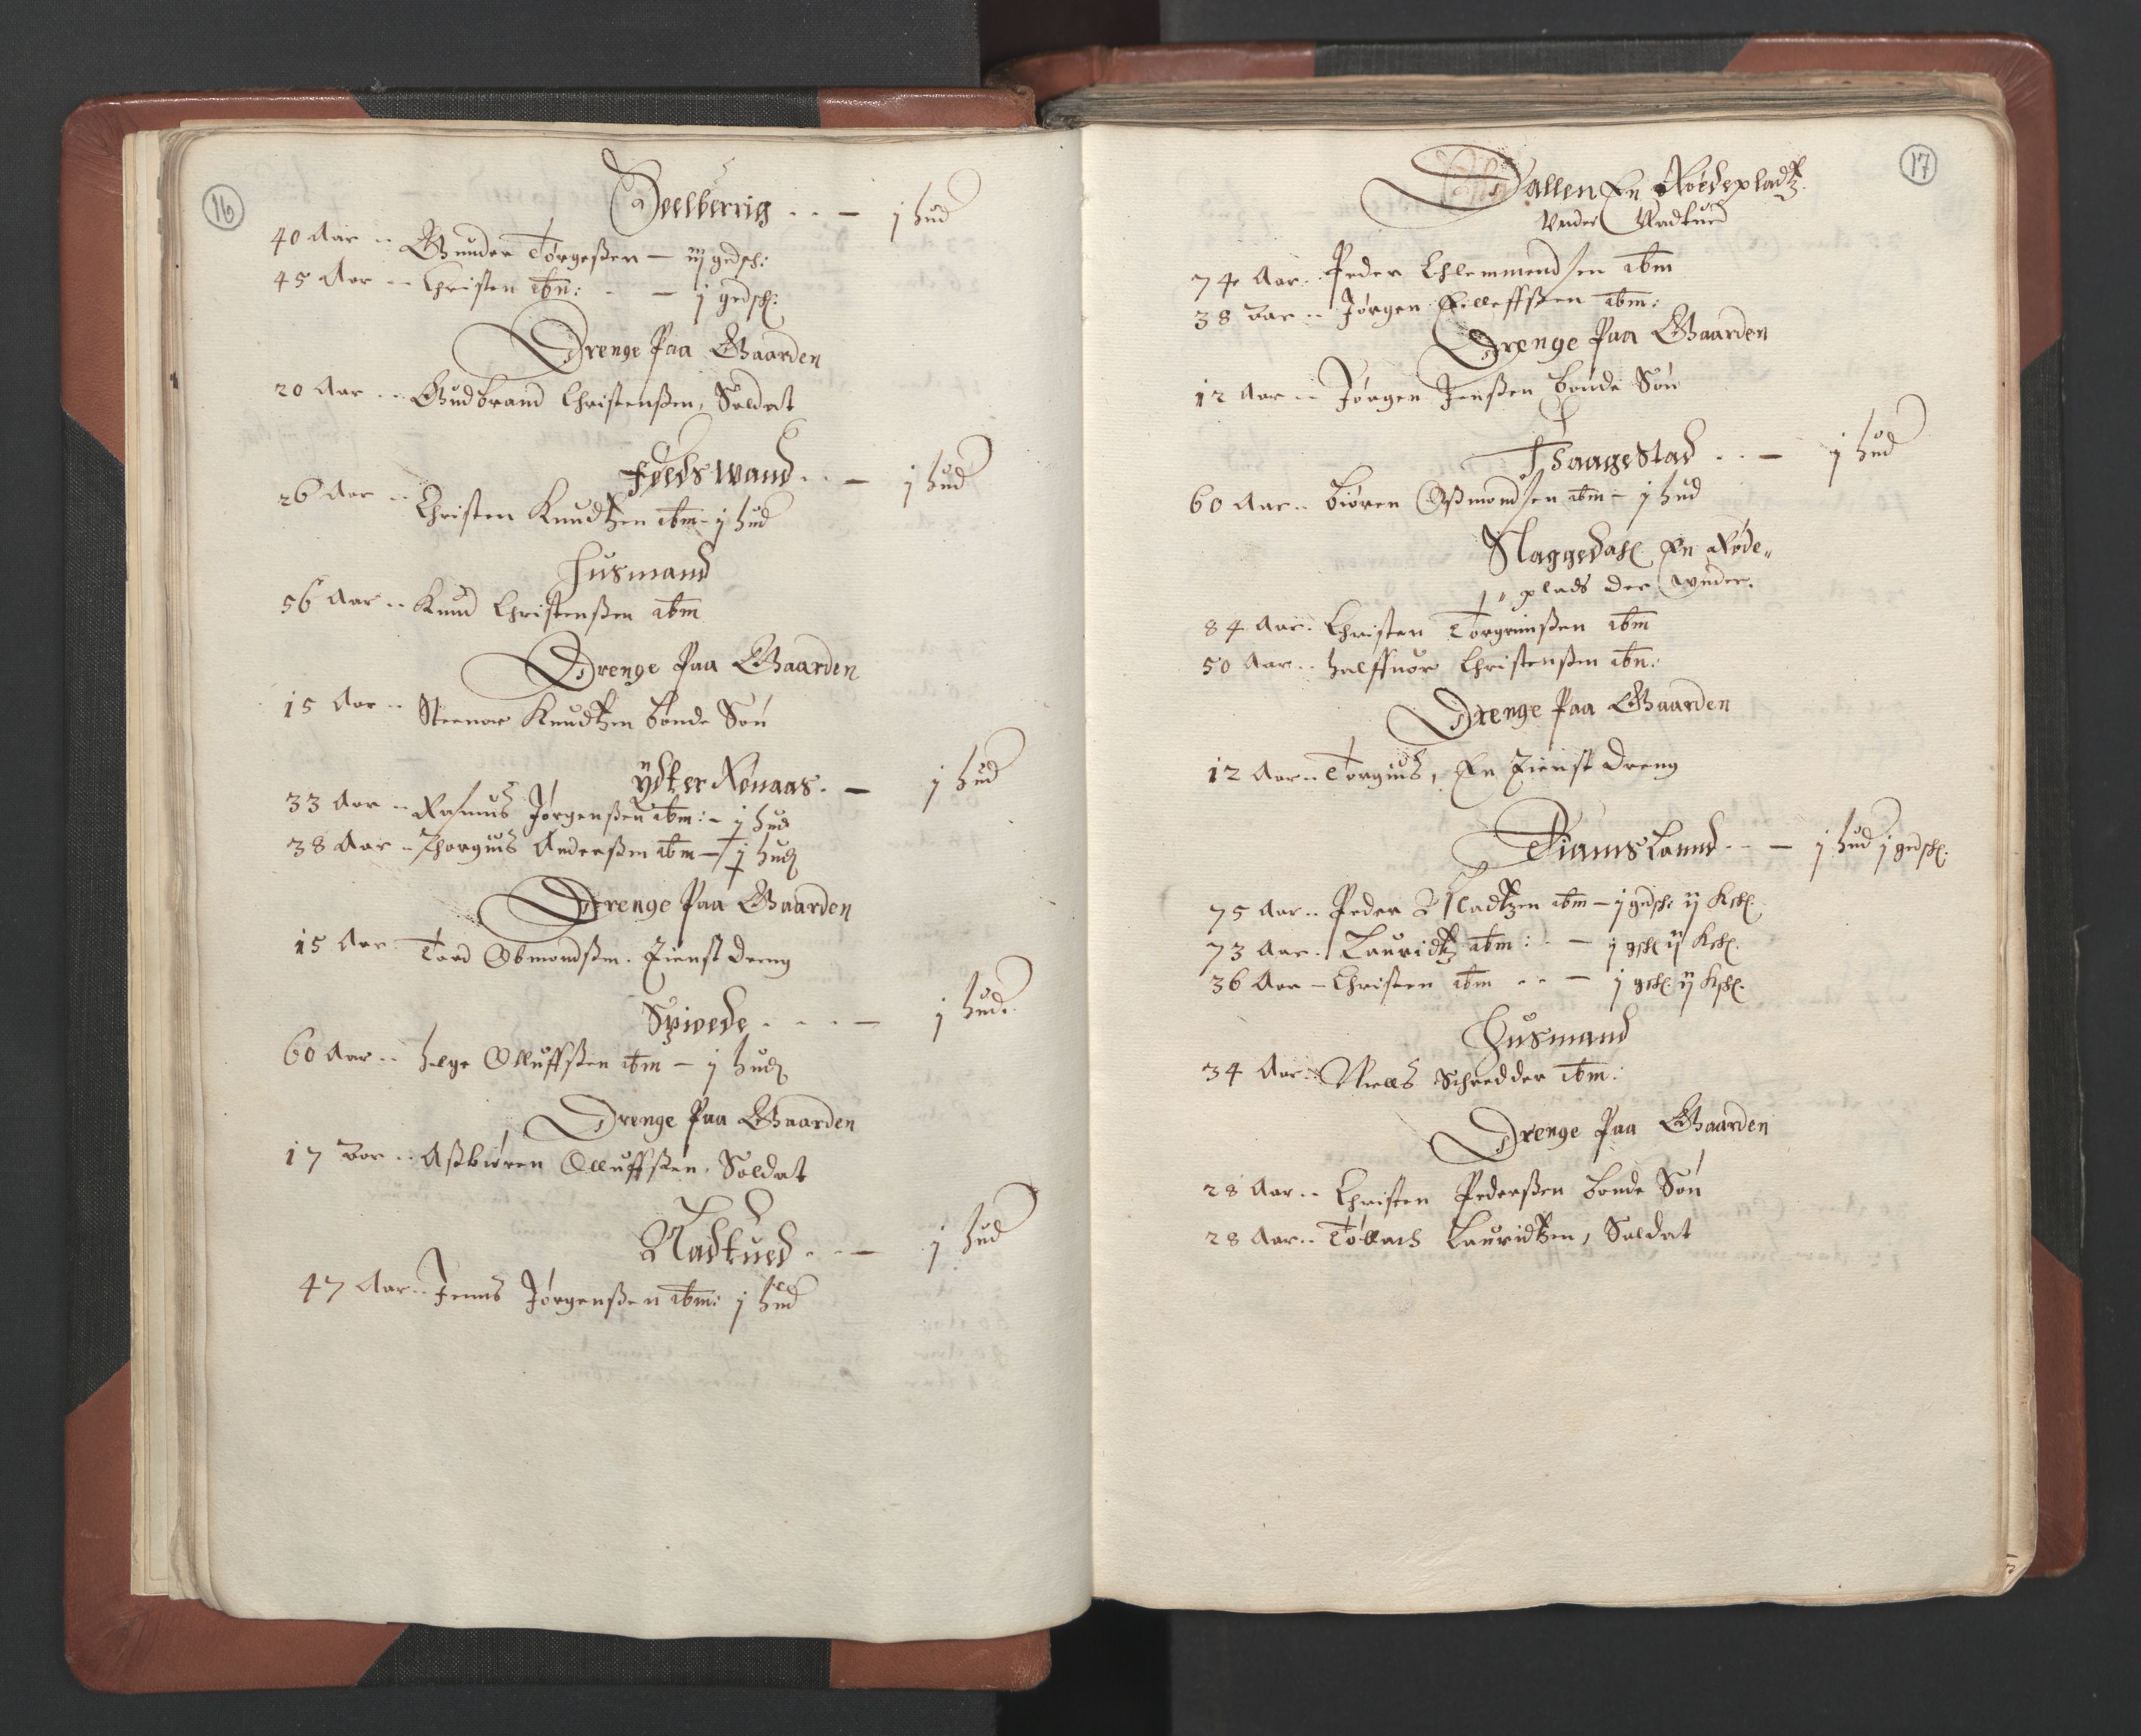 16
Deelberrig . . — j hud
40 Aar .. Gunder Törgeßen — iij gedsk:
45 Aar .. Christen ibn: — j gedsk:
Drenge Paa Gaarden
20 Aar .. Gudbrand Christenßen, Soldat
Foelswand . . — j hud
26 Aar .. Christen Knudtzen ibm — j hud
Husmand
56 Aar .. Knud Christenßen ibm
Drenge Paa Gaarden
15 Aar .. Steenar Knudtzen bonde Søn
ydter Rønaas . — j hud
33 Aar .. Rasmus Jørgenßen ibm: — j hud
38 Aar .. Thorgius Anderßen ibm — j hud
Drenge Paa Gaarden
15 Aar Tord Obmondßen. Tienst dreng
Spioede . . . . — j hud.
60 Aar .. Helge Olluffßen ibm — j hud
Drenge Paa Gaarden
17 Aar .. Aßbiøren Olluffßen, Soldat
Nadtued . . — j hud
47 Aar .. Jenns Jørgenßen ibm: j hud
17
Dallen En Röedepladtz
Vnder Nadtued
74 Aar. Peder Chlemmendsen ibm
38 Aar .. Jørgen Eilleffßen ibm:
Drenge Paa Gaarden
12 Aar .. Jørgen Jenßen bonde Søn
Thaagestad . . — j hud
60 Aar .. biøren Oßmondsen ibm — j hud
Slaggedahl En Røde„
„plads der wnder.
84 Aar. Christen Torgrimßen ibm
50 Aar .. Halffuor Christenßen ibn:
Drenge Paa Gaarden
12 Aar .. Torgius, En Tienst dreng
Tiamslannd . . — j hud j gedsk:
75 Aar .. Peder ibm — j gedsk: ij Ksk.
73 Aar .. Lauridtz ibm: . — j gsk ij Ksk.
36 Aar — Christen ibm . . — j gsk. ij Ksk.
Husmand
34 Aar .. Niells Schredder ibm:
Drenge Paa Gaarden
28 Aar .. Christen Pederßen bonde Søn
28 Aar .. Tollach Lauridtzen, Soldat